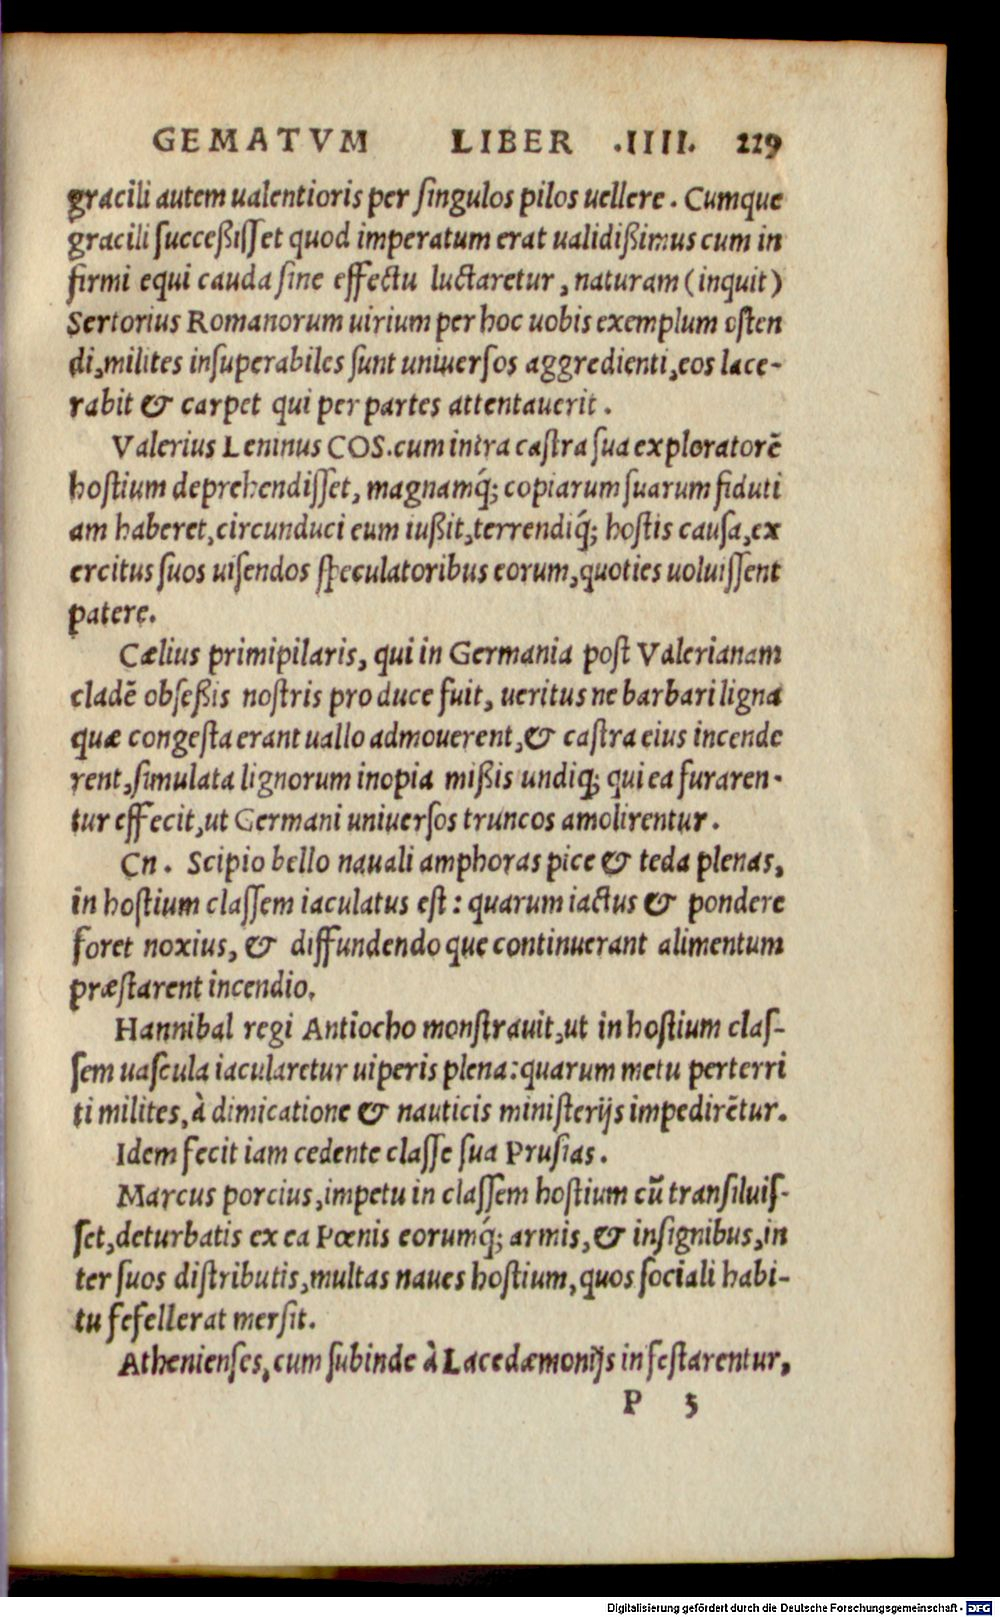 GEMATVM LIBER .IIII. 229
gracili autem ualentioris per ſingulos pilos uellere. Cumque
gracili ſucceßiſſet quod imperatum erat ualidißimus cum in
firmi equi cauda ſine effectu luctaretur, naturam (inquit)
Sertorius Romanorum uirium per hoc uobis exemplum oſten
di, milites inſuperabiles ſunt uniuerſos aggredienti, eos lace-
rabit & carpet qui per partes attentauerit.
Valerius Leninus COS. cum intra caſtra ſua exploratorē
hoſtium deprehendiſſet, magnamq́; copiarum ſuarum fiduti
am haberet, circunduci eum iußit, terrendiq́; hoſtis cauſa, ex
ercitus ſuos uiſendos ſpeculatoribus eorum, quoties uoluiſſent
patere.
Cælius primipilaris, qui in Germania poſt Valerianam
cladē obſeßis noſtris pro duce fuit, ueritus ne barbari ligna
quæ congeſta erant uallo admouerent, & caſtra eius incende
rent, ſimulata lignorum inopia mißis undiq; qui ea furaren-
tur effecit, ut Germani uniuerſos truncos amolirentur.
Cn. Scipio bello nauali amphoras pice & teda plenas,
in hoſtium claſſem iaculatus eſt: quarum iactus & pondere
foret noxius, & diffundendo que continuerant alimentum
præſtarent incendio.
Hannibal regi Antiocho monſtrauit, ut in hoſtium claſ-
ſem uaſcula iacularetur uiperis plena: quarum metu perterri
ti milites, à dimicatione & nauticis miniſterijs impedirētur.
Idem fecit iam cedente claſſe ſua Pruſias.
Marcus porcius, impetu in claſſem hoſtium cū tranſiluiſ-
ſet, deturbatis ex ea Pœnis eorumq́; armis, & inſignibus, in
ter ſuos diſtributis, multas naues hoſtium, quos ſociali habi-
tu fefellerat merſit.
Athenienſes, cum ſubinde à Lacedæmonijs infeſtarentur,
P 3
Digitalisierung gefördert durch die Deutsche Forschungsgemeinschaft - DFG